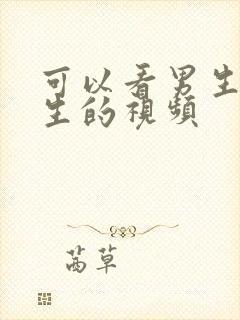 可以看男生
生的視頻
茜草